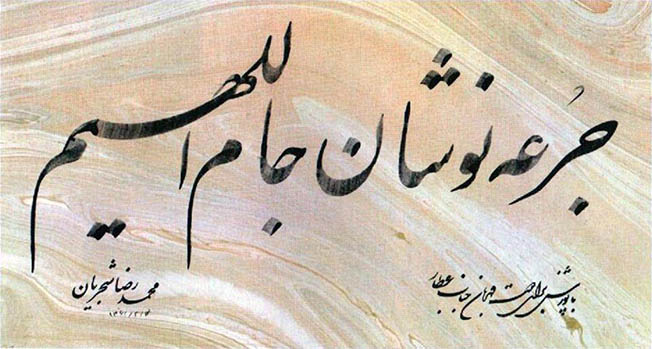 جُرعه نوشان جام اللهیم
با پوزش برای دوست مهربان جناب عطار
محمدرضا شجریان